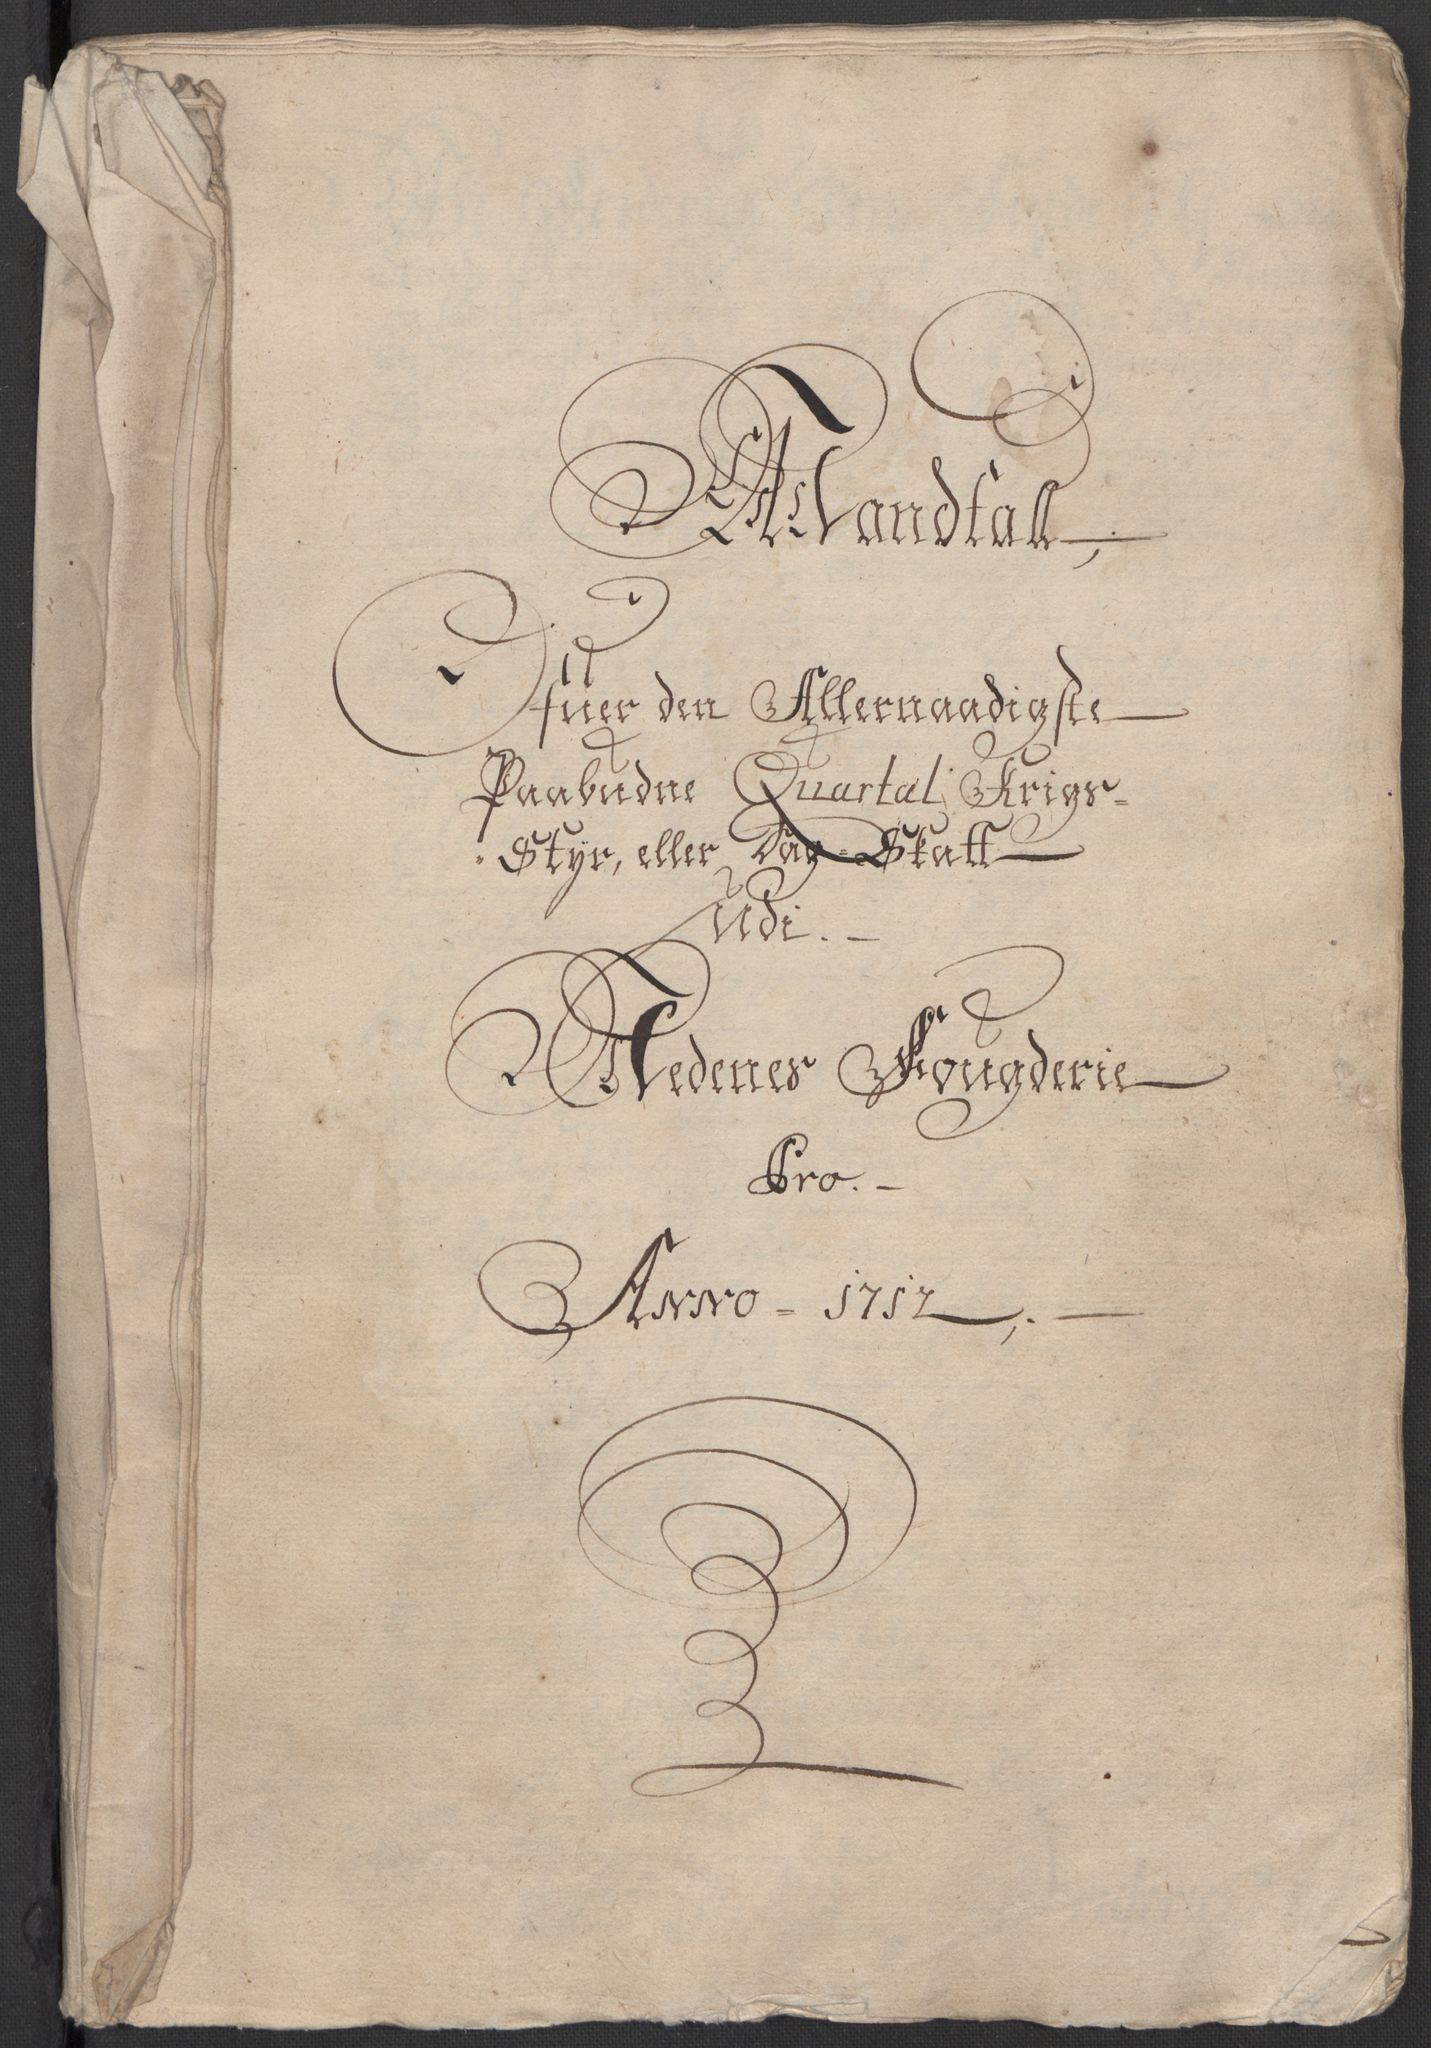 Mandtall,
Ofuer den Allernaadigste
Paabudne Quartal Krigs-
Styr, eller Dag-Skatt
Udi.
Nedenes Fougderie
Pro.
Anno = 1712,.